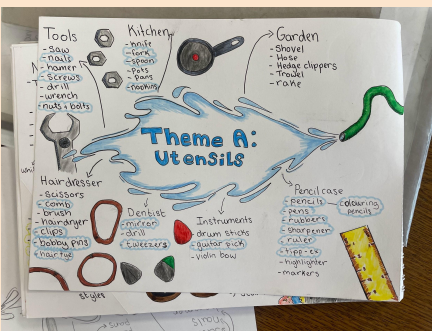 Tools
- saw
- nails
- hamer
- screws
- drill
- wrench
- nuts + bolts
Kitchen
- knife
- fork
- spoon
- pots
- pans
Garden
- Shovel
- Hose
- Hedge clippers
- Trowel
- rake
Theme A:
Utensils
Hairdresser
- scissors
- comb
- brush
- hairdryer
- clips
- bobby pins
- hair tye
Dentist
- mirror
- drill
- tweezers
Instruments
- drum sticks
- guitar pick
- violin bow
Pencilcase
- pencils - colouring pencils
- pens
- rubbers
- sharpener
- ruler
- tipp-ex
- highlighter
- markers
styles